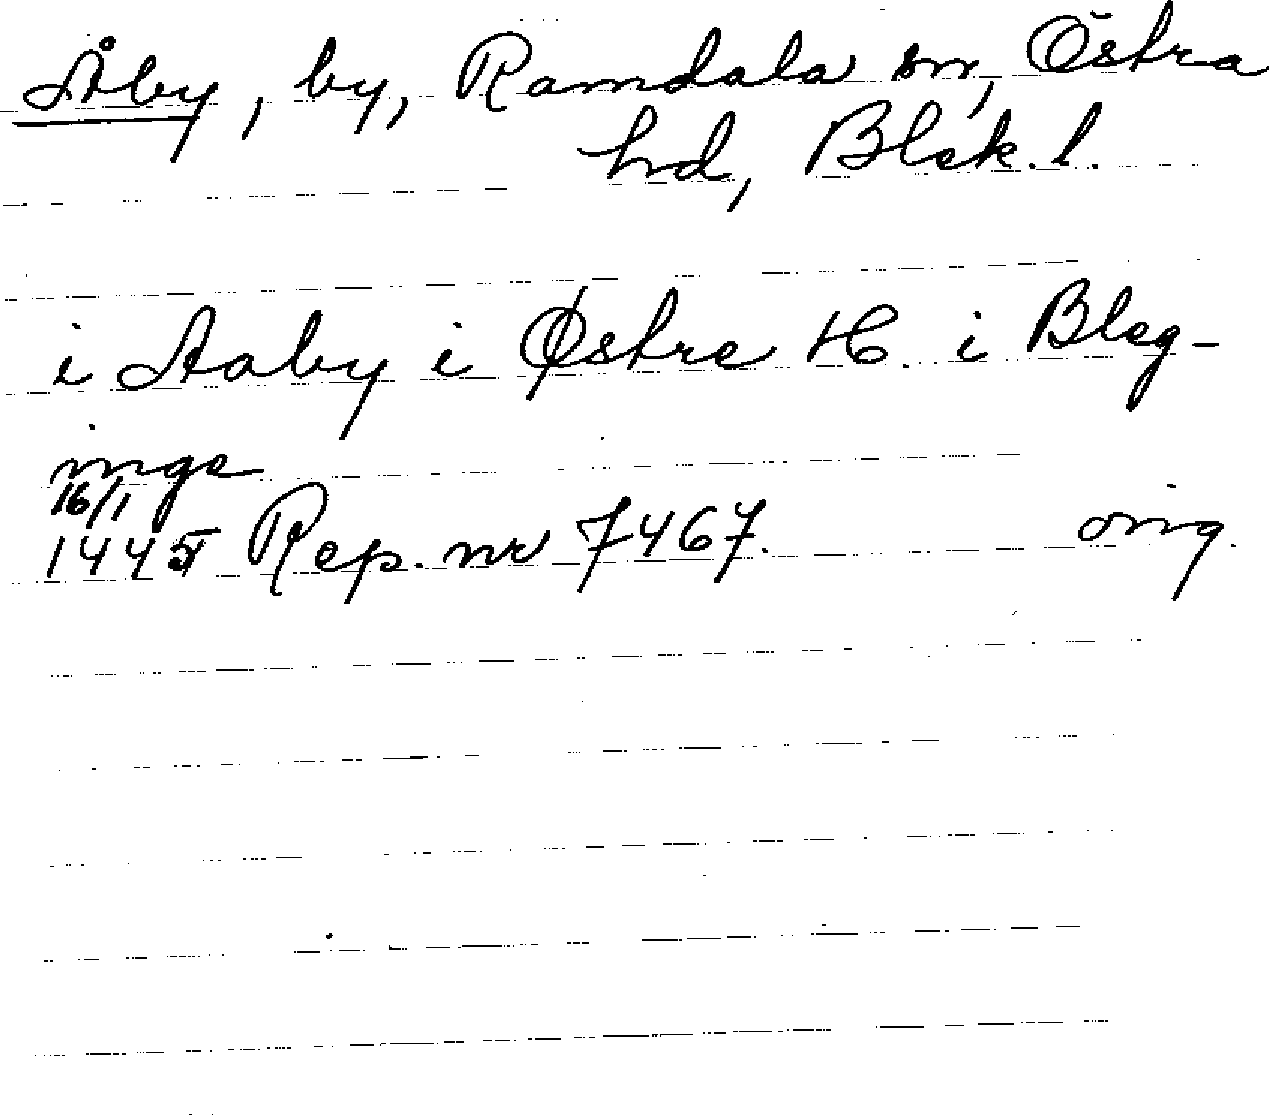 Åby, by, Ramdala sn, Östra
hd, Blek. l.
i Aaby i Østre H. i Bleg-
inge
16/1
1445 Rep. nr 7467. orig.